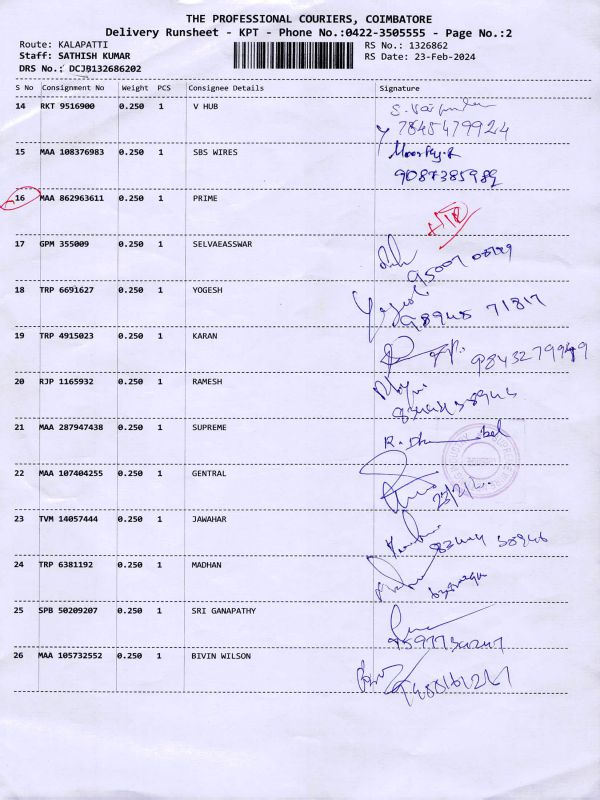 THE PROFESSIONAL COURIERS, COIMBATORE
Delivery Runsheet - KPT - Phone No.:0422-3505555 - Page No.:2
Route: KALAPATTI
RS No.: 1326862
Staff: SATHISH KUMAR
RS Date: 23-Feb-2024
DRS No.: DCJB132686202
S No Consignment No Weight PCS Consignee Details Signature
14 RKT 9516900 0.250 1 V HUB
7845479924
15 MAA 108376983 0.250 1 SBS WIRES
9087385989
16 MAA 862963611 0.250 1 PRIME
17 GPM 355009 0.250 1 SELVAEASSWAR
18 TRP 6691627 0.250 1 YOGESH
98948 71817
19 TRP 4915023 0.250 1 KARAN
20 RJP 1165932 0.250 1 RAMESH
21 MAA 287947438 0.250 1 SUPREME
22 MAA 107404255 0.250 1 GENTRAL
23 TVM 14057444 0.250 1 JAWAHAR
24 TRP 6381192 0.250 1 MADHAN
25 SPB 50209207 0.250 1 SRI GANAPATHY
26 MAA 105732552 0.250 1 BIVIN WILSON